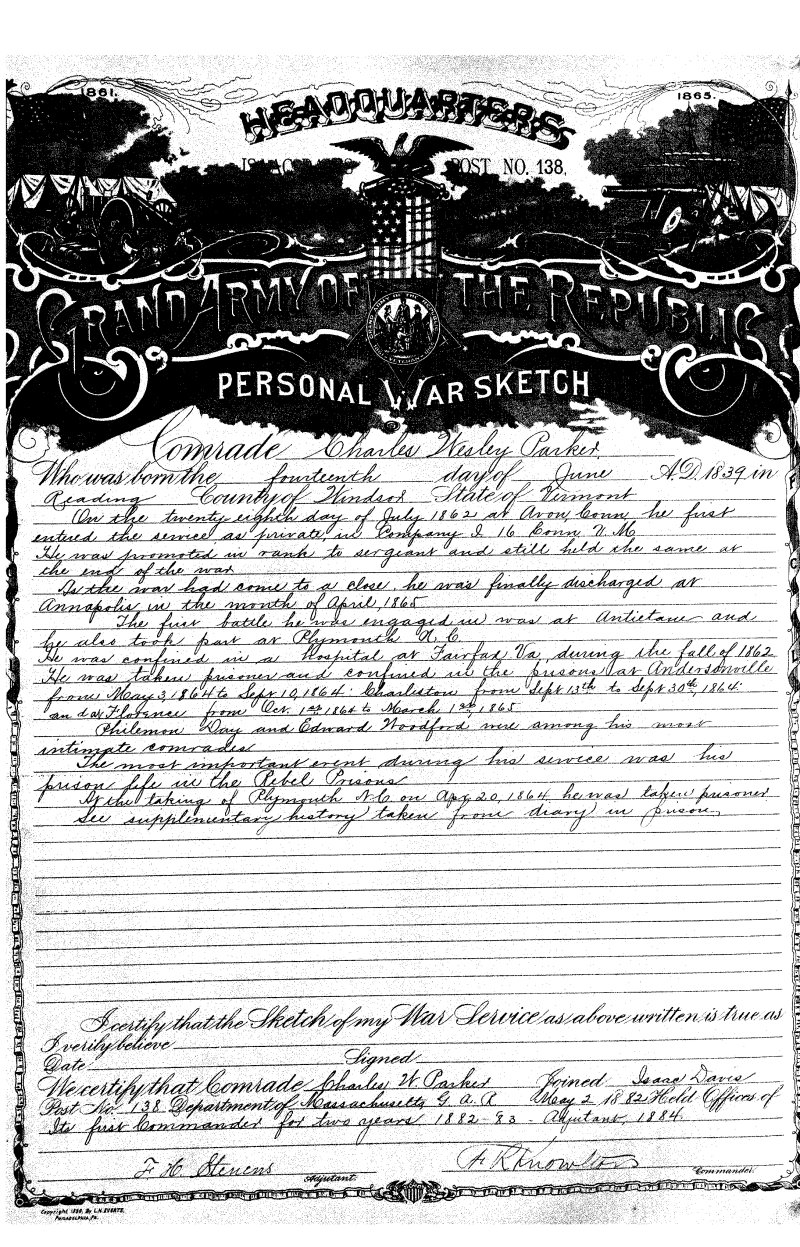 1861.
1865.
HEADQUARTERS
ISAAC DAVIS POST NO. 138.
GRAND ARMY OF THE REPUBLIC
PERSONAL WAR SKETCH
Comrade Charles Wesley Parker,
Who was born the fourteenth day of June A.D. 1839 in
Reading County of Windsor State of Vermont
On the twenty eighth day of July 1862 at Avon, Conn, he first
entered the service as private in Company I. 16 Conn V. M.
He was promoted in rank to sergeant and still held the same at
the end of the war
As the war had come to a close, he was finally discharged at
Annapolis in the month of April, 1865
The first battle he was engaged in was at Antietam and
he also took part at Plymouth N. C.
He was confined in a hospital at Fairfax Va, during the fall of 1862
He was taken prisoner and confined in the prisons at Andersonville
from May 3, 1864 to Sept 10, 1864: Charleston from Sept 13th to Sept 30th, 1864:
and at Florence from Oct. 1st 1864 to March 1st, 1865
Philemon Day and Edward Woodford were among his most
intimate comrades
The most important event during his service was his
prison life in the Rebel Prisons
At the taking of Plymouth N.C. on Apr 20, 1864 he was taken prisoner
See supplementary history taken from diary in prison,
I certify that the Sketch of my War Service as above written is true as
I verily believe
Date Signed
We certify that Comrade Charles W. Parker Joined Isaac Davis
Post No. 138 Department of Massachusetts G. A. R May 2 1882 Held Offices of
Its first Commander for two years 1882-83 - Adjutant, 1884.
F. H. Stevens Adjutant. A R Knowlton Commander.
Copyright 1890, By L.H. EVERTS,
PHILADELPHIA, PA.